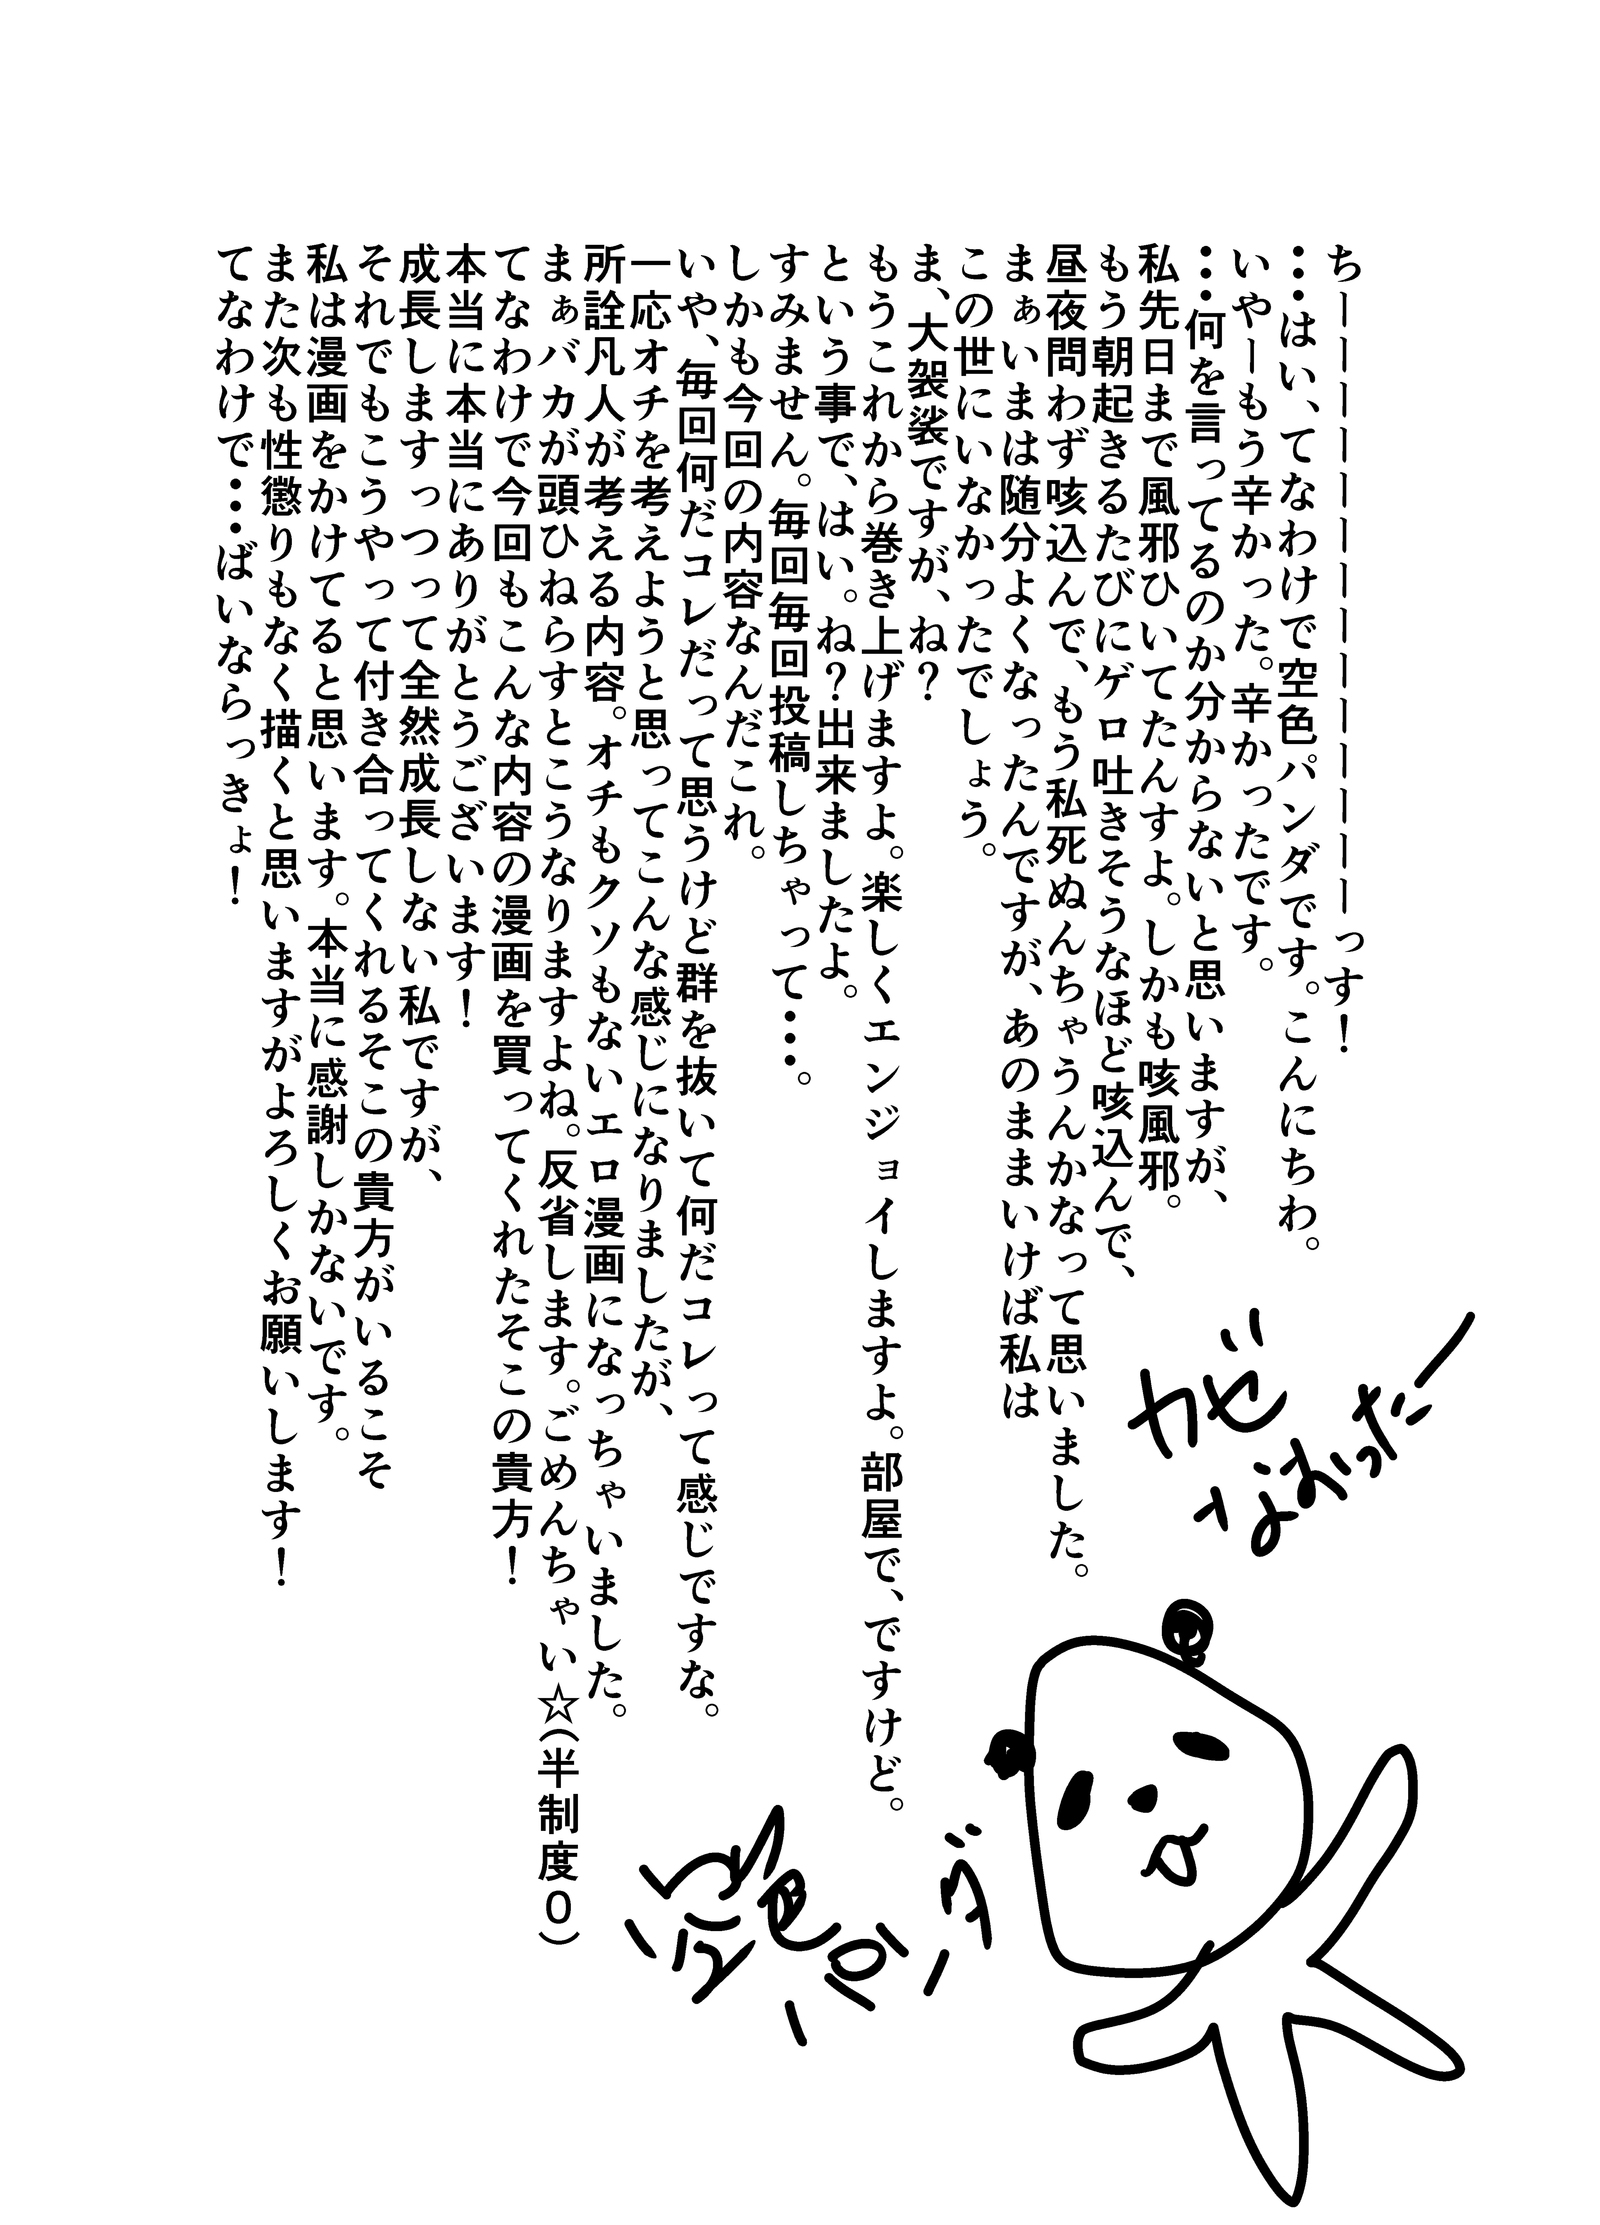 ちーーーーーーーーーーーーーっす！
…はい、てなわけで空色パンダです。こんにちわ。
いやーもう辛かった。辛かったです。
…何を言ってるのか分からないと思いますが、
私先日まで風邪ひいてたんすよ。しかも咳風邪。
もう朝起きるたびにゲロ吐きそうなほど咳込んで、
昼夜問わず咳込んで、もう私死ぬんちゃうんかなって思いました。
まぁいまは随分よくなったんですが、あのままいけば私は
この世にいなかったでしょう。
ま、大袈裟ですが、ね？
もうこれから巻き上げますよ。楽しくエンジョイしますよ。部屋で、ですけど。
という事で、はい。ね？出来ましたよ。
すみません。毎回毎回投稿しちゃって…。
しかも今回の内容なんだこれ。
いや、毎回何だコレだって思うけど群を抜いて何だコレって感じですな。
一応オチを考えようと思ってこんな感じになりましたが、
所詮凡人が考える内容。オチもクソもないエロ漫画になっちゃいました。
まぁバカが頭ひねらすとこうなりますよね。反省します。ごめんちゃい☆（半制度０）
てなわけで今回もこんな内容の漫画を買ってくれたそこの貴方！
本当に本当にありがとうございます！
成長しますっつって全然成長しない私ですが、
それでもこうやって付き合ってくれるそこの貴方がいるこそ
私は漫画をかけてると思います。本当に感謝しかないです。
また次も性懲りもなく描くと思いますがよろしくお願いします！
てなわけで…ばいならっきょ！
カゼ
なおったー
空色パンダ